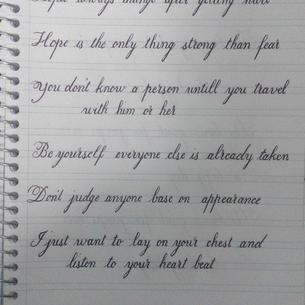 People always change after getting hurt
Hope is the only thing strong than fear
You don't know a person untill you travel
with him or her
Be yourself everyone else is already taken
Don't judge anyone base on appearance
I just want to lay on your chest and
listen to your heart beat